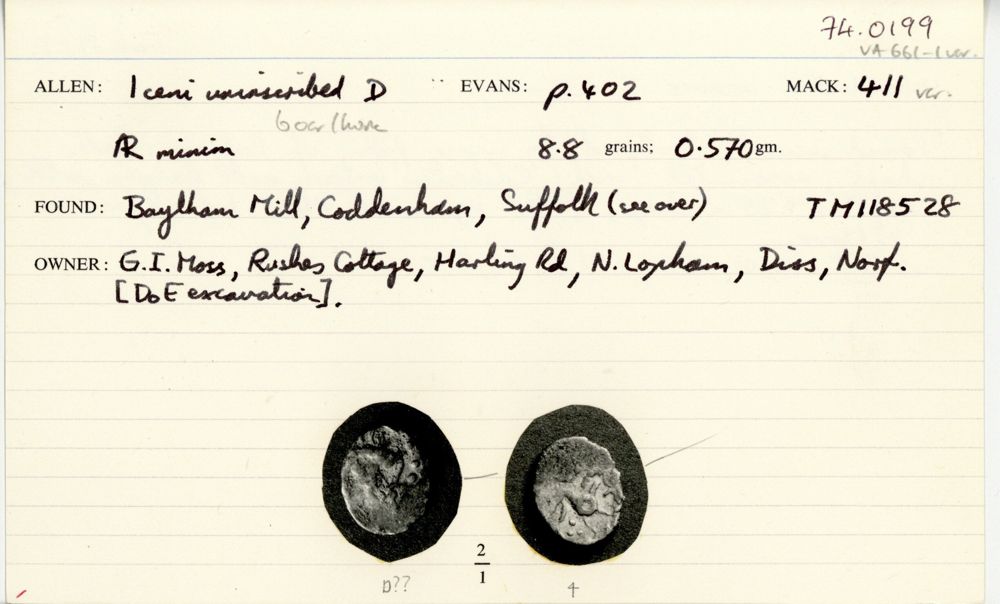 74.0199
VA 661-1 var.
ALLEN: Iceni uninscribed D EVANS: p.402 MACK: 411 var.
boar/horse
AR minim 8.8 grains; 0.570 gm.
FOUND: Baylham Mill, Coddenham, Suffolk (see over) TM118528
OWNER: G.I. Moss, Rushes Cottage, Harling Rd, N. Lopham, Diss, Norf.
[DoE excavation].
2
1
D?? 4